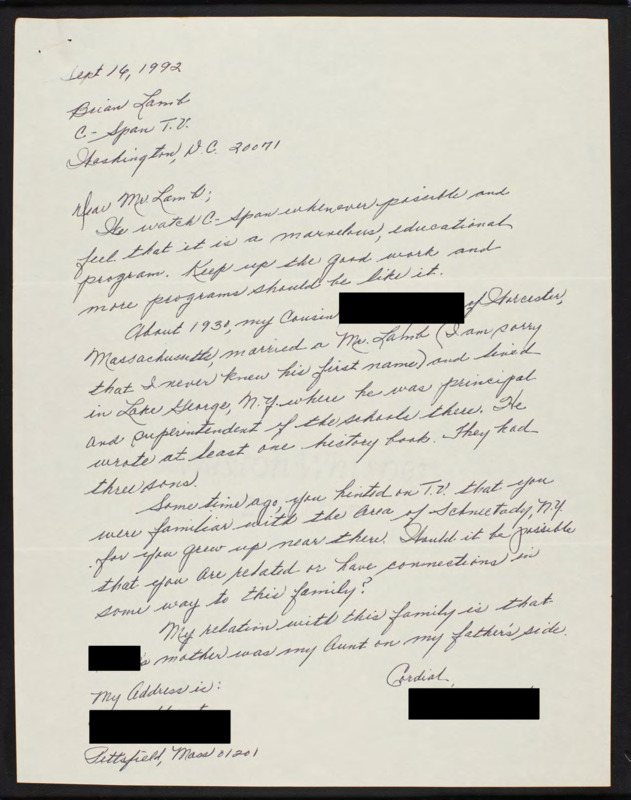 Sept 16, 1992
Brian Lamb
C-Span T.V.
Washington, D.C. 20071
Dear Mr Lamb;
We watch C-Span whenever possible and
feel that it is a marvelous, educational
program. Keep up the good work and
more programs should be like it.
About 1930, my Cousin of Worcester,
Massachusetts, married a Mr. Lamb (I am sorry
that I never knew his first name) and lived
in Lake George, N.Y. where he was principal
and superintendent of the schools there. He
wrote at least one history book. They had
three sons.
Some time ago, you hinted on T.V. that you
were familiar with the area of Schnectady, N.Y.
for you grew up near there. Would it be possible
that you are related or have connections in
some way to this family?
My relation with this family is that
's mother was my Aunt on my father's side.
Cordial,
My Address is:
Pittsfield, Mass 01201